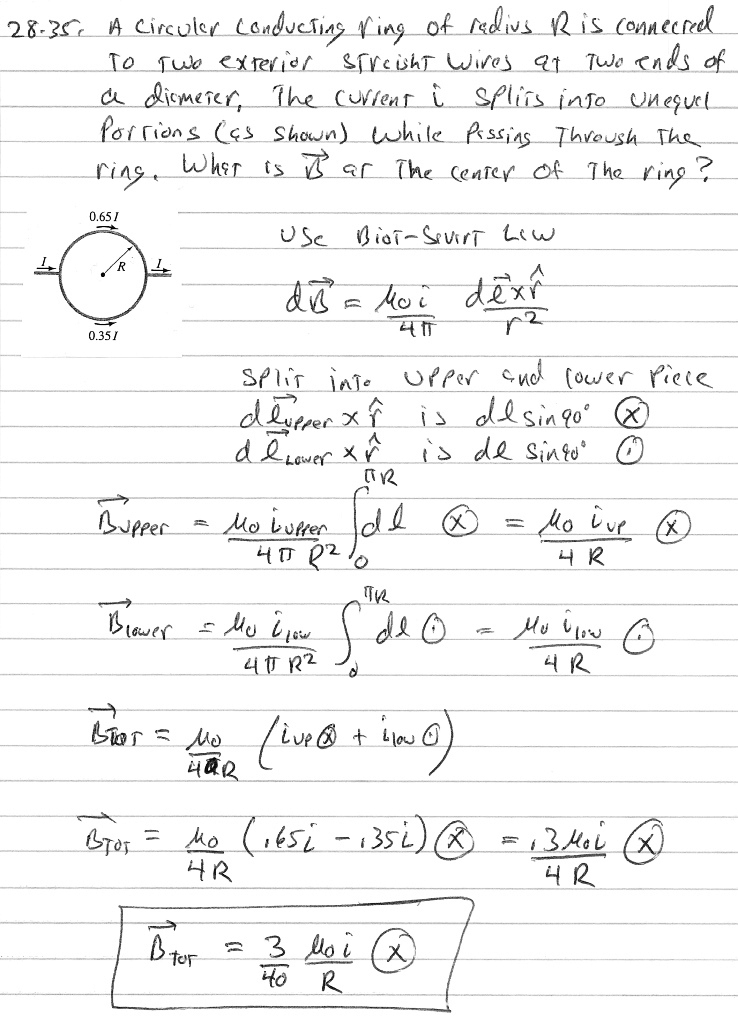 28-35. A circular conducting ring of radius R is connected
to two exterior straight wires at two ends of
a diameter. The current i splits into unequal
portions (as shown) while passing through the
ring. What is B⃗ at the center of the ring?
0.65I
I
R
I
0.35I
Use Biot-Savart Law
dB⃗ = μ₀i/4π dl⃗×r̂/r²
Split into upper and lower piece
dl⃗upper × r̂ is dl sin90° ⊗
dl⃗Lower × r̂ is dl sin90° ⊙
B⃗upper = μ₀ iupper/4πR² ∫₀^πR dl ⊗ = μ₀ iup/4R ⊗
B⃗lower = μ₀ ilow/4πR² ∫₀^πR dl ⊙ = μ₀ ilow/4R ⊙
B⃗TOT = μ₀/4R (iup⊗ + ilow⊙)
B⃗TOT = μ₀/4R (.65i - .35i) ⊗ = .3μ₀i/4R ⊗
B⃗tot = 3/40 μ₀i/R ⊗